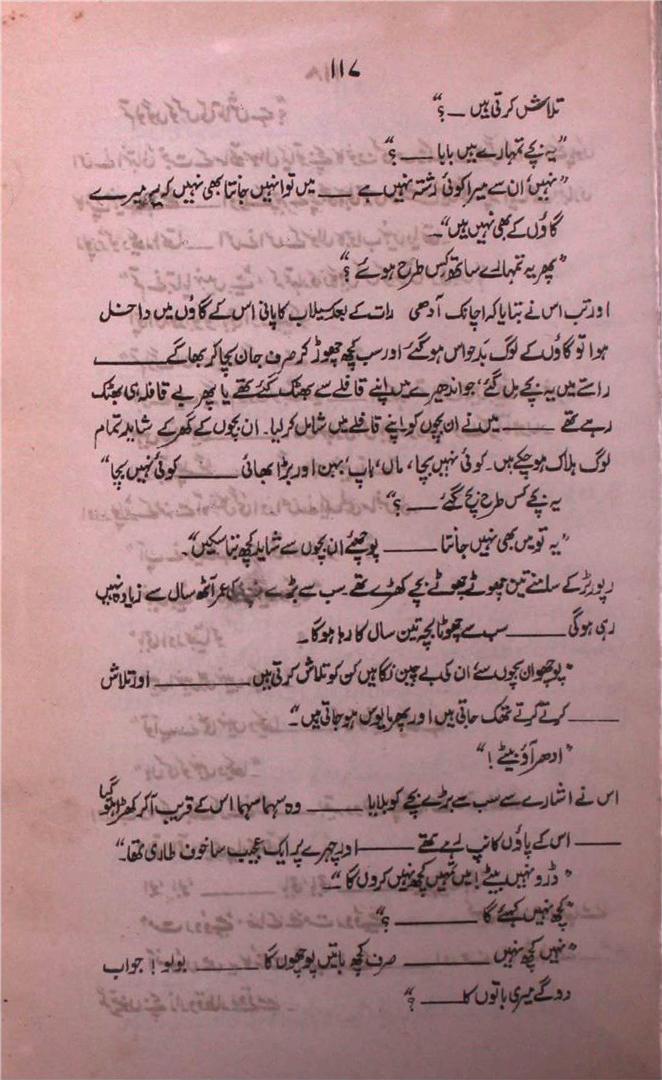 ۱۱۷
تلاش کرتی ہیں ــ؟“
”یہ بچے تمہارے ہیں بابا ــــ؟“
”نہیں‘ ان سے میرا کوئی رشتہ نہیں ہے ــــ میں تو انہیں جانتا بھی نہیں کہ یہ میرے
گاؤں کے بھی نہیں ہیں“۔
”پھر یہ تمہارے ساتھ کس طرح ہوئے ؟“
اور تب اس نے بتایا کہ اچانک آدھی رات کے بعد سیلاب کا پانی اس کے گاؤں میں داخل
ہوا تو گاؤں کے لوگ بدحواس ہو گئے اور سب کچھ چھوڑ کر صرف جان بچا کر بھاگے ــــــــ
راستے میں یہ بچے مل گئے‘ جو اندھیرے میں اپنے قافلے سے بھٹک گئے تھے یا پھر بے قافلہ ہی بھٹک
رہے تھے ــــــ میں نے ان بچوں کو اپنے قافلے میں شامل کر لیا۔ ان بچوں کے گھر کے شاید تمام
لوگ ہلاک ہو چکے ہیں۔ کوئی نہیں بچا، ماں‘ باپ‘ بہن اور بڑا بھائی ــــــ کوئی نہیں بچا“
یہ بچے کس طرح بچ گئے ــــ؟“
”یہ تو میں بھی نہیں جانتا ــــــ پوچھئے ان بچوں سے شاید کچھ بتا سکیں“۔
رپورٹر کے سامنے تین چھوٹے چھوٹے بچے کھڑے تھے۔ سب سے بڑے بچہ کی عمر آٹھ سال سے زیادہ نہیں
رہی ہوگی ــــــ سب سے چھوٹا بچہ تین سال کا رہا ہوگا۔
”پوچھو ان بچوں سے‘ ان کی بے چین نگاہیں کن کو تلاش کرتی ہیں ــــــــ اور تلاش
ــــــ کرتے کرتے تھک جاتی ہیں اور پھر مایوس ہو جاتی ہیں“۔
”ادھر آؤ بیٹے !“
اس نے اشارے سے سب سے بڑے بچے کو بلایا ــــــ وہ سہما سہما اس کے قریب آکر کھڑا ہو گیا
ــــــ اس کے پاؤں کانپ رہے تھے ــــــ اور چہرے پر ایک عجیب سا خوف طاری تھا۔“
”ڈرو نہیں بیٹے! میں تمہیں کچھ نہیں کروں گا“۔
”کچھ نہیں کہئے گا ــــــــ؟“
”نہیں کچھ نہیں ــــــــ صرف کچھ باتیں پوچھوں گا ــــــــ بولو ! جواب
دو گے میری باتوں کا ــــــ؟“